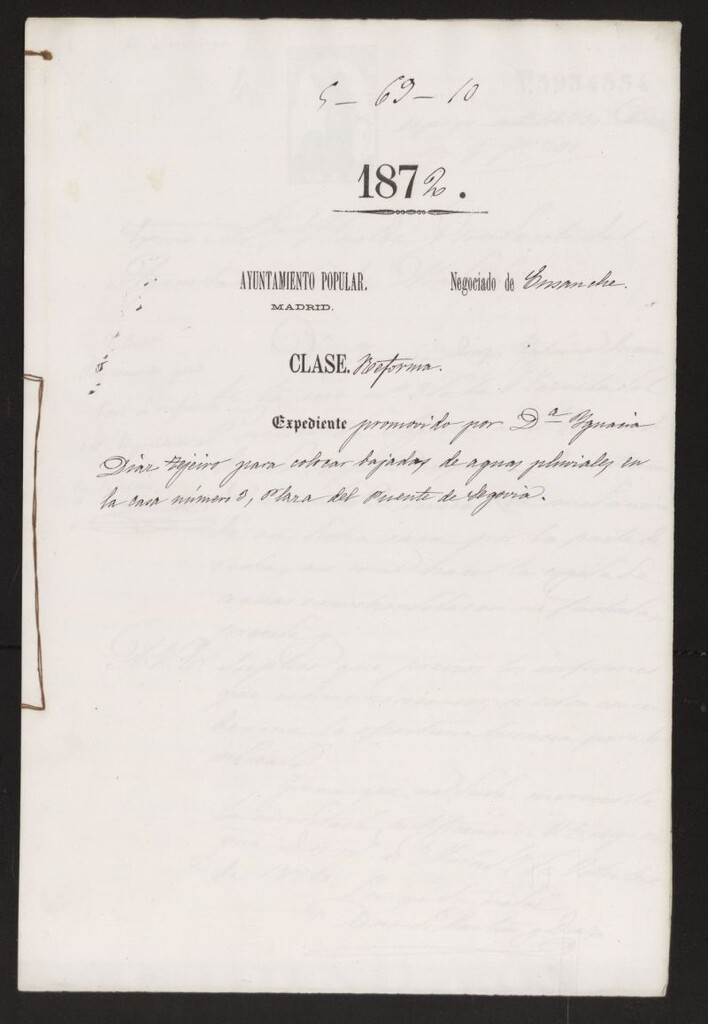 5-69-10
1872.
AYUNTAMIENTO POPULAR.
MADRID.
Negociado de Ensanche.
CLASE. Reforma.
Expediente promovido por Dª Ygnacia
Diaz Tejeiro para colocar bajadas de aguas pluviales en
la casa número 3, Plaza del Puente de Segovia.